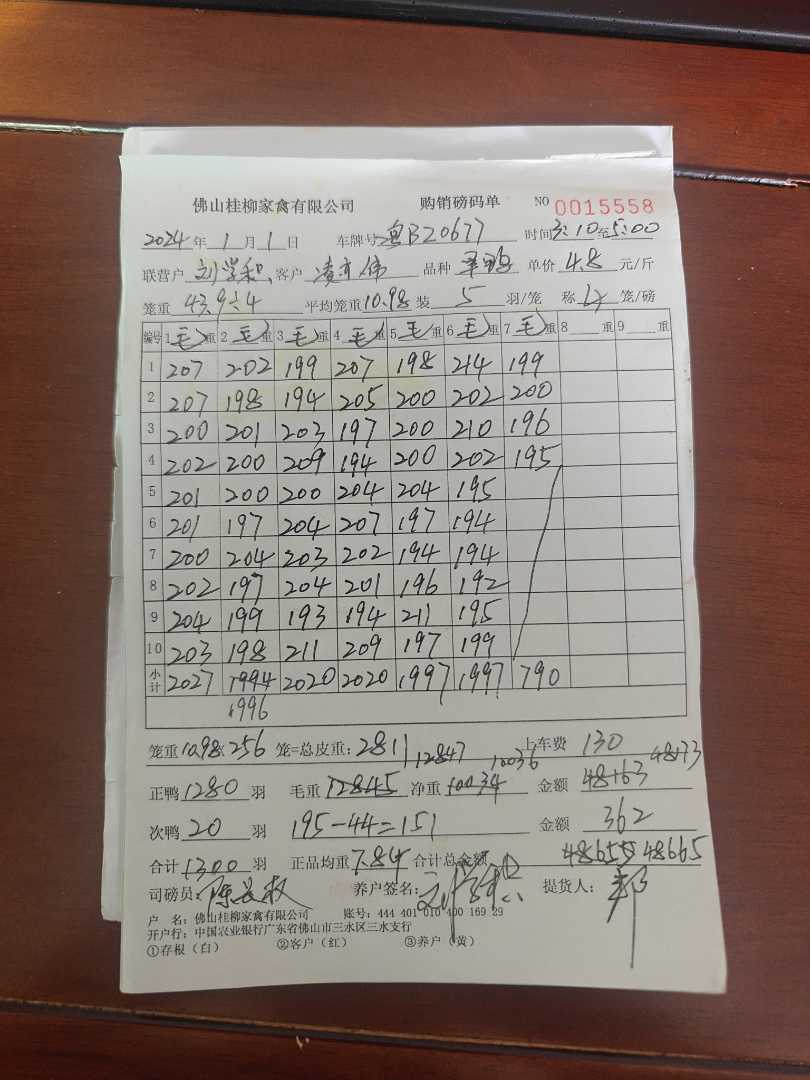 佛山桂柳家禽有限公司 购销磅码单 NO 0015558
2024年1月1日 车牌号粤B20677 时间3:10至5:00
联营户 刘学和 客户 凌亦伟 品种 单价4.8元/斤
笼重43.9÷4 平均笼重10.98 装5羽/笼 称4笼/磅
编号 1毛重 2毛重 3毛重 4毛重 5毛重 6毛重 7毛重 8重 9重
1 207 202 199 207 198 214 199
2 207 198 194 205 200 202 200
3 200 201 203 197 200 210 196
4 202 200 209 194 200 202 195
5 201 200 200 204 204 195
6 201 197 204 207 197 194
7 200 204 203 202 194 194
8 202 197 204 201 196 192
9 204 199 193 194 211 195
10 203 198 211 209 197 199
小计 2027 1994 2020 2020 1997 1997 790
1996
笼重10.98×256笼=总皮重:2811 12847 10036 上车费 130 48173
正鸭1280羽 毛重12845 净重10034 金额 48163
次鸭20羽 195-44=151 金额 362
合计1300羽 正品均重7.84 合计总金额 48655 48665
司磅员: 养户签名: 提货人:
户 名:佛山桂柳家禽有限公司 账号:444 401 010 400 169 29
开户行:中国农业银行广东省佛山市三水区三水支行
①存根(白) ②客户(红) ③养户(黄)